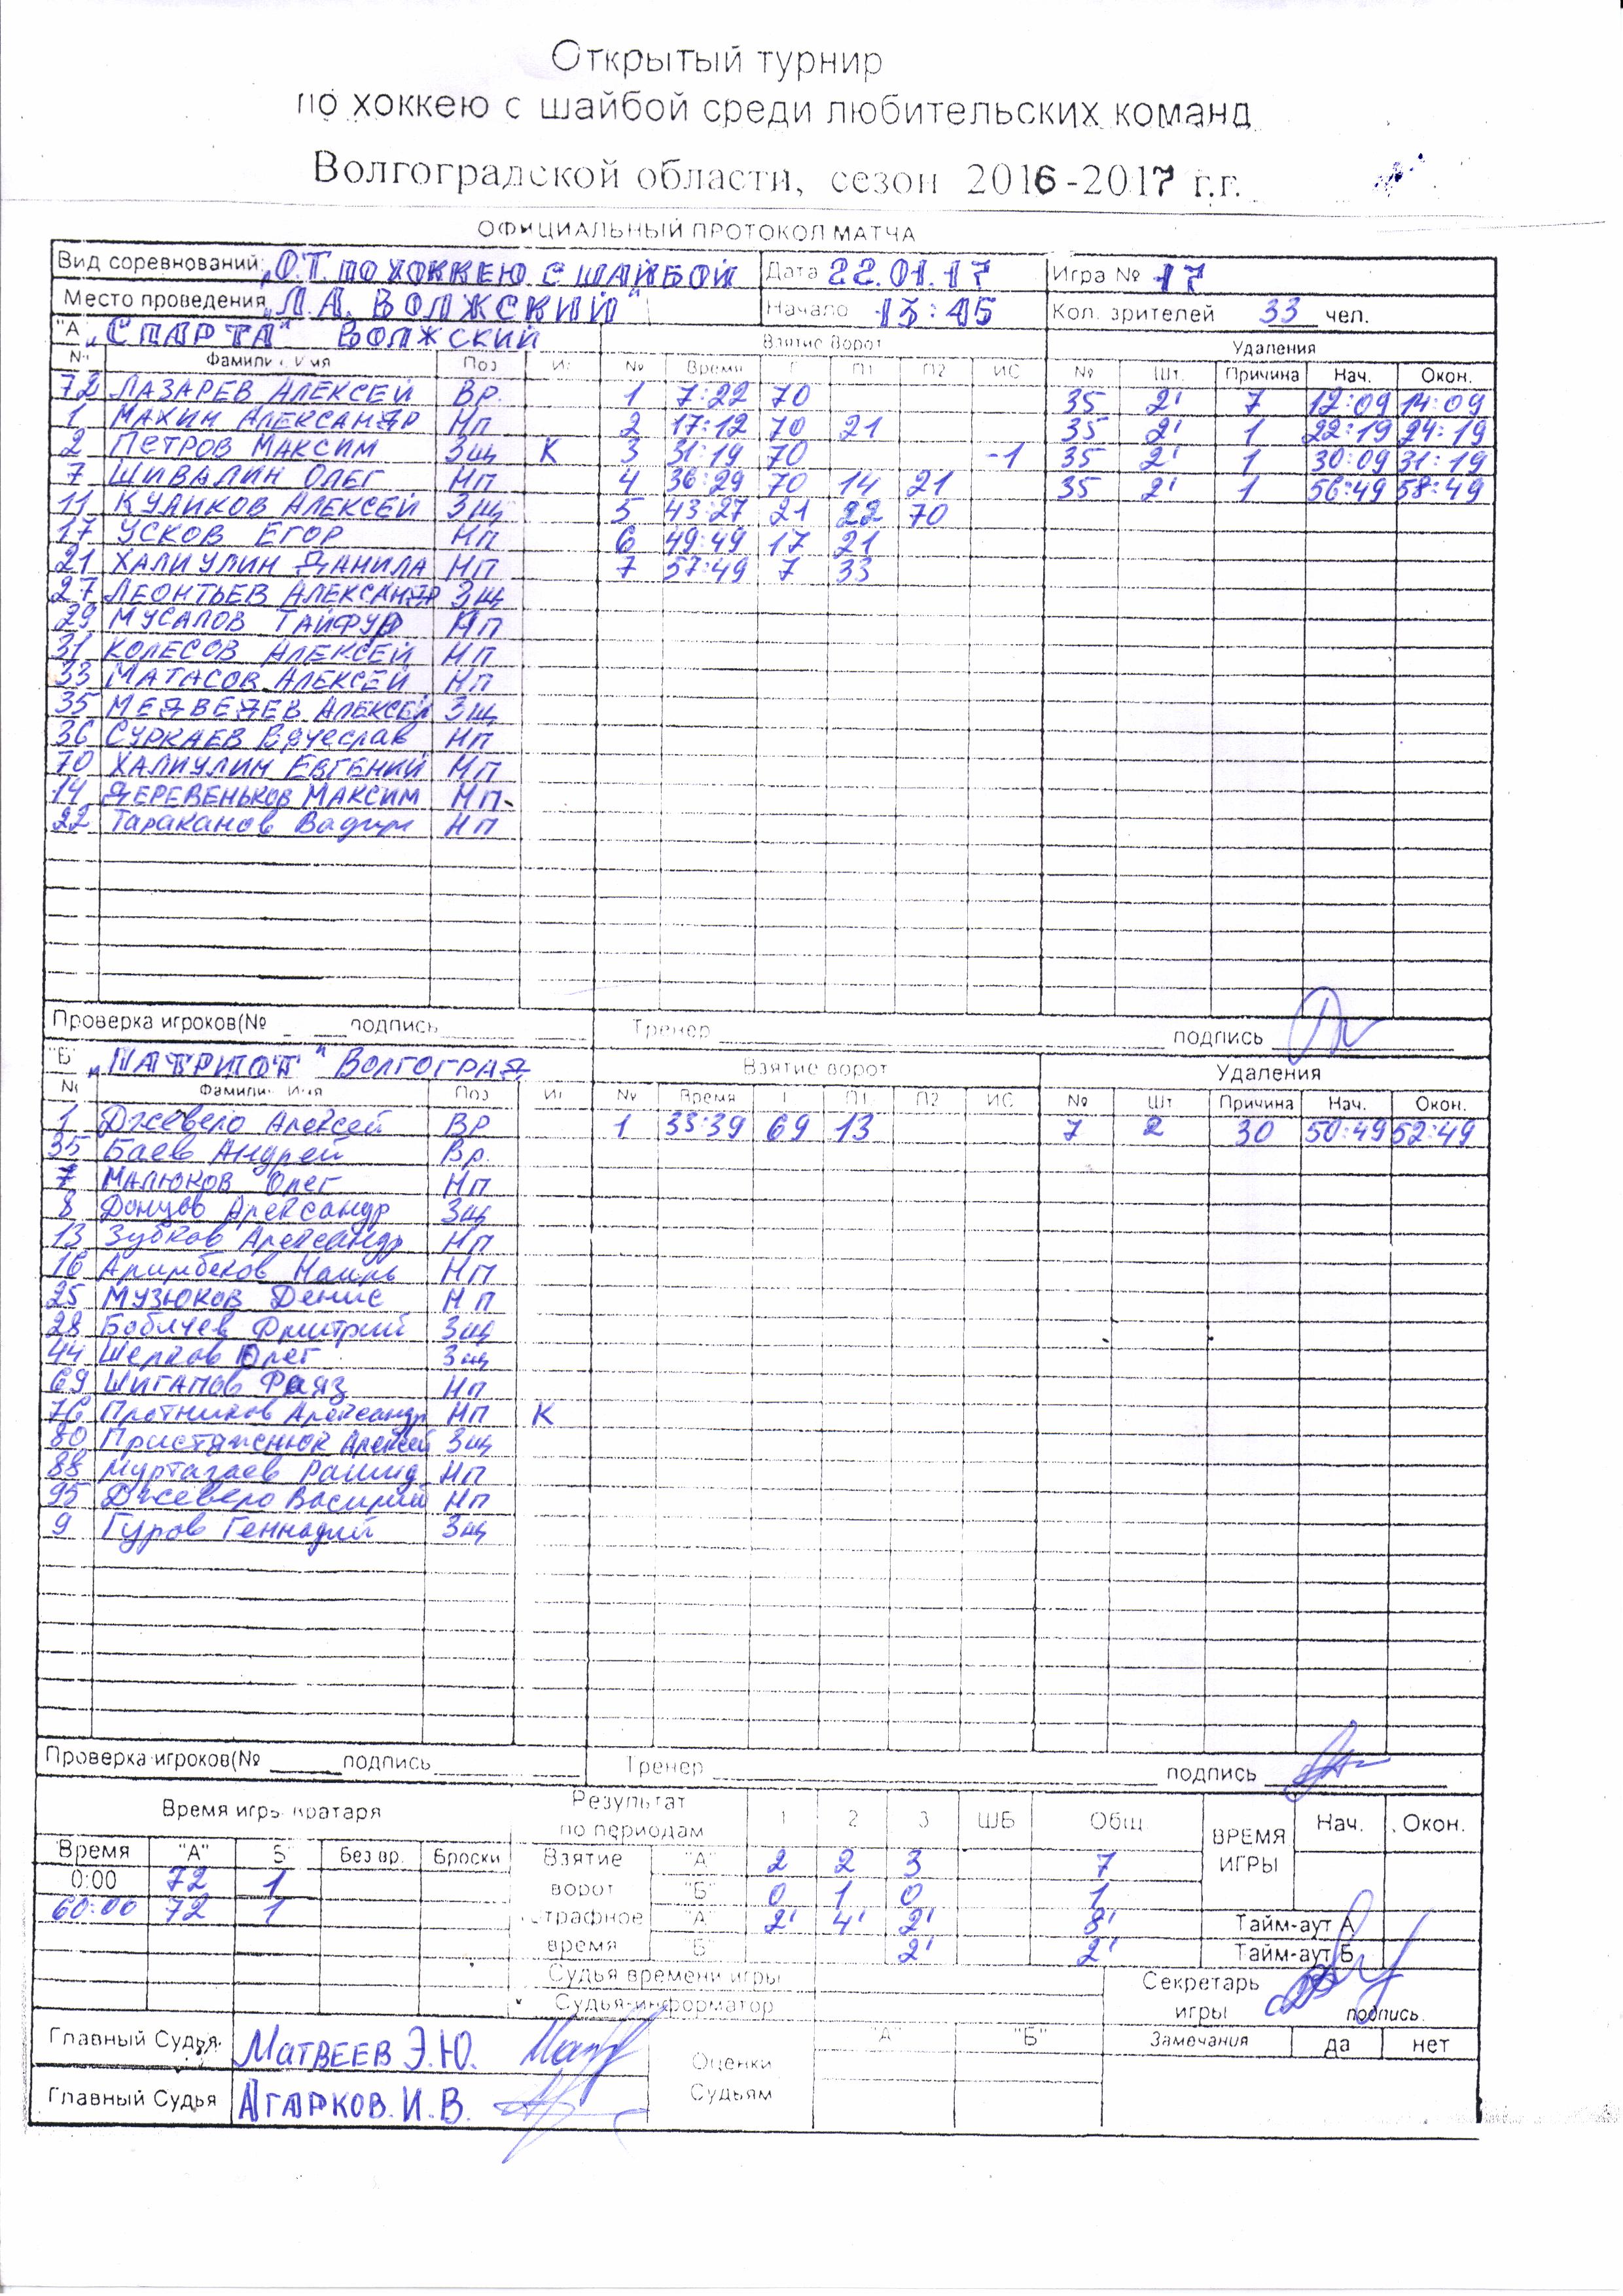 Открытый турнир
по хоккею с шайбой среди любительских команд
Волгоградской области, сезон 2016-2017 г.г.
ОФИЦИАЛЬНЫЙ ПРОТОКОЛ МАТЧА
Вид соревнований: О.Т. ПО ХОККЕЮ С ШАЙБОЙ Дата 22.01.17 Игра № 17
Место проведения „Л.А. ВОЛЖСКИЙ" Начало 13:45 Кол. зрителей 33 чел.
"А" „СПАРТА" ВОЛЖСКИЙ Взятие ворот Удаления
№ Фамилия Имя Поз Иг № Время Г П1 П2 ИС № Шт. Причина Нач. Окон.
72 ЛАЗАРЕВ АЛЕКСЕЙ Вр. 1 7:22 70 35 2' 7 12:09 14:09
1 МАХИН АЛЕКСАНДР Нп 2 17:12 70 21 35 2' 1 22:19 24:19
2 ПЕТРОВ МАКСИМ Зщ К 3 31:19 70 -1 35 2' 1 30:09 31:19
7 ШИВАЛИН ОЛЕГ Нп 4 36:29 70 14 21 35 2' 1 56:49 58:49
11 КУЛИКОВ АЛЕКСЕЙ Зщ 5 43:27 21 22 70
17 УСКОВ ЕГОР Нп 6 49:49 17 21
21 ХАЛИУЛИН ДАНИЛА Нп 7 57:49 7 33
27 ЛЕОНТЬЕВ АЛЕКСАНДР Зщ
29 МУСАЛОВ ТАЙФУР Нп
31 КОЛЕСОВ АЛЕКСЕЙ Нп
33 МАТАСОВ АЛЕКСЕЙ Нп
35 МЕДВЕДЕВ АЛЕКСЕЙ Зщ
36 СУРКАЕВ Вячеслав Нп
70 ХАЛИУЛИН ЕВГЕНИЙ Нп
14 ДЕРЕВЕНЬКОВ МАКСИМ Нп.
22 Тараканов Вадим Нп
Проверка игроков(№ подпись Тренер подпись
"Б" „ПАТРИОТ" ВОЛГОГРАД Взятие ворот Удаления
№ Фамилия Имя Поз Иг № Время Г П1 П2 ИС № Шт Причина Нач. Окон.
1 Джевело Алексей ВР 1 33:39 69 13 7 2 30 50:49 52:49
35 Баев Андрей Вр.
7 МАЛЮКОВ Олег Нп
8 Донцов Александр Зщ
13 Зубков Александр Нп
16 Аримбеков Наиль Нп
25 МУЗЮКОВ Денис Нп
28 Бобычев Дмитрий Зщ
44 Шелков Олег Зщ
69 ШИГАПОВ Фаяз Нп
76 Плотников Александр Нп К
80 Пристяжнюк Алексей Зщ
88 Муртазаев Рашид Нп
95 Джевело Василий Нп
9 Гуров Геннадий Зщ
Проверка игроков(№ подпись Тренер подпись
Время игры вратаря Результат по периодам 1 2 3 ШБ Общ ВРЕМЯ ИГРЫ Нач. Окон.
Время "А" Б" Без вр. Броски Взятие "А" 2 2 3 7
0:00 72 1 ворот "Б" 0 1 0 1
60:00 72 1 штрафное "А" 2' 4' 2' 8' Тайм-аут А
время Б" 2' 2' Тайм-аут Б
Судья времени игры Секретарь
Судья-информатор игры подпись
Главный Судья МАТВЕЕВ Э.Ю. Оценки "А" "Б" Замечания да нет
Главный Судья АГАРКОВ.И.В. Судьям